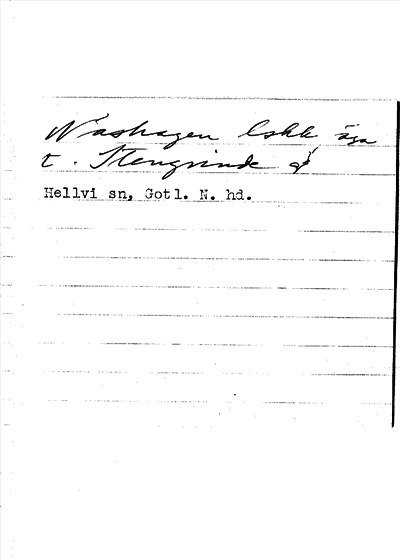 Nashagen lskh äga
t. Stengrinde gd
Hellvi sn, Gotl. N. hd.